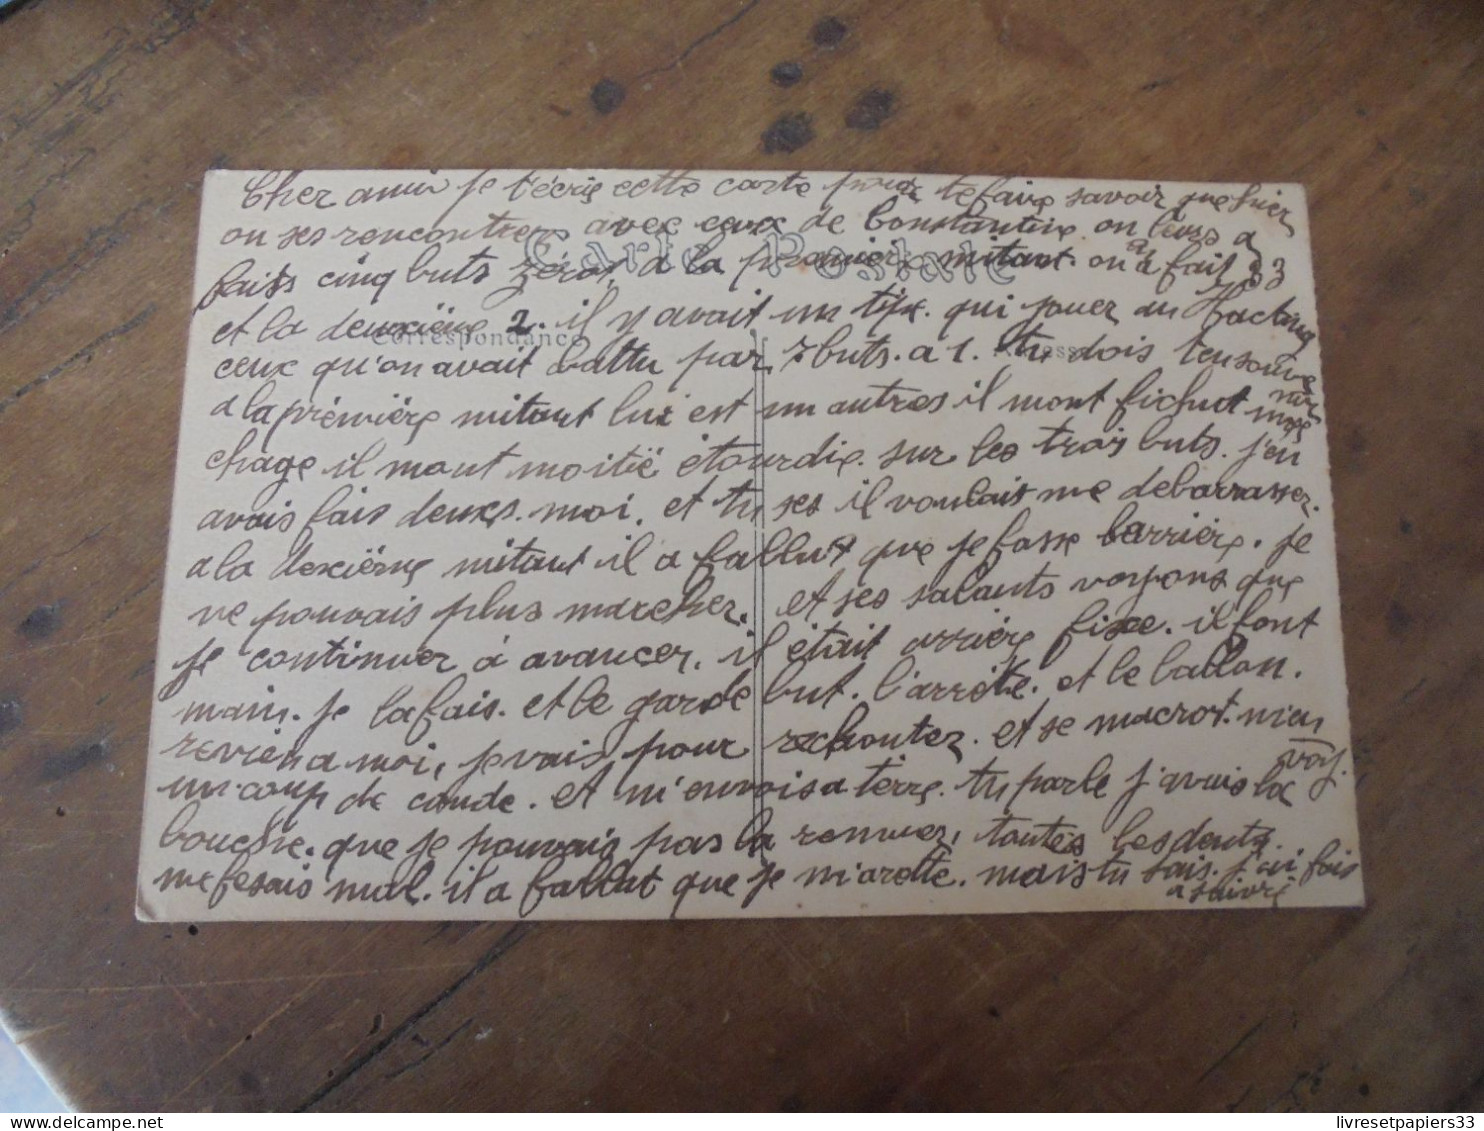 Cher ami je t'écris cette carte pour te faire savoir que hier
on ses rencontrer avec ceux de Constantine on leurs a
Carte Postale
faits cinq buts zéros, a la premier mitant. on en a fait 3
et la deuxième 2. il y avait un tipe. qui jouer au Racting
Correspondance
ceux qu'on avait battu par 7 buts. a 1. tu dois t'en souve
nir
a la première mitant lui est un autres il mont fichut
chage il mont moitié étourdie. sur les trois buts. j'en
avais fais deuxs. moi. et tu ses il voulais me debarrasser.
a la dexième mitant il a fallut que je fasse barrière. je
ne pouvais plus marcher. et ses salants voyons que
je continuer à avancer. il était arrière fixe. il font
main. je la fais. et le garde but. l'arrête. et le ballon.
revien a moi, je vais pour rechouter. et se macrot. m'en
voy.
un coup de coude. et m'envois a terre. tu parle j'avais la
bouche. que je pouvais pas la remuer, toutes les dents.
me fesais mal. il a fallut que je m'arette. mais tu sais. j'ai fais
a suivre
livresetpapiers33